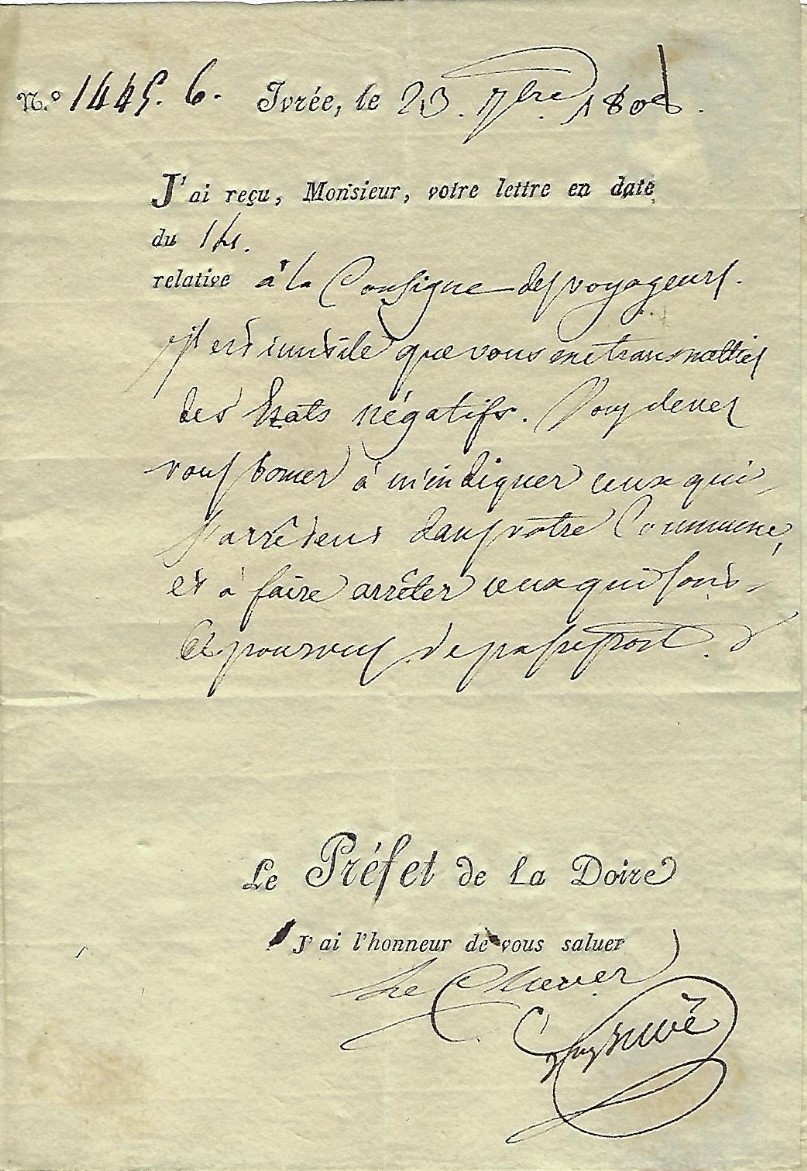 N.° 1445. 6. Ivrée, le 23. 7bre 180
J'ai reçu, Monsieur, votre lettre en date
du 14.
relative à la Consigne des voyageurs.
il est inutile que vous me transmettiez
des Etats négatifs. Vous devez
vous borner à m'indiquer ceux qui
s'arrêtent dans votre Commune,
et à faire arrêter ceux qui sont
dépourvus de passeport.
Le Préfet de la Doire
J'ai l'honneur de vous saluer